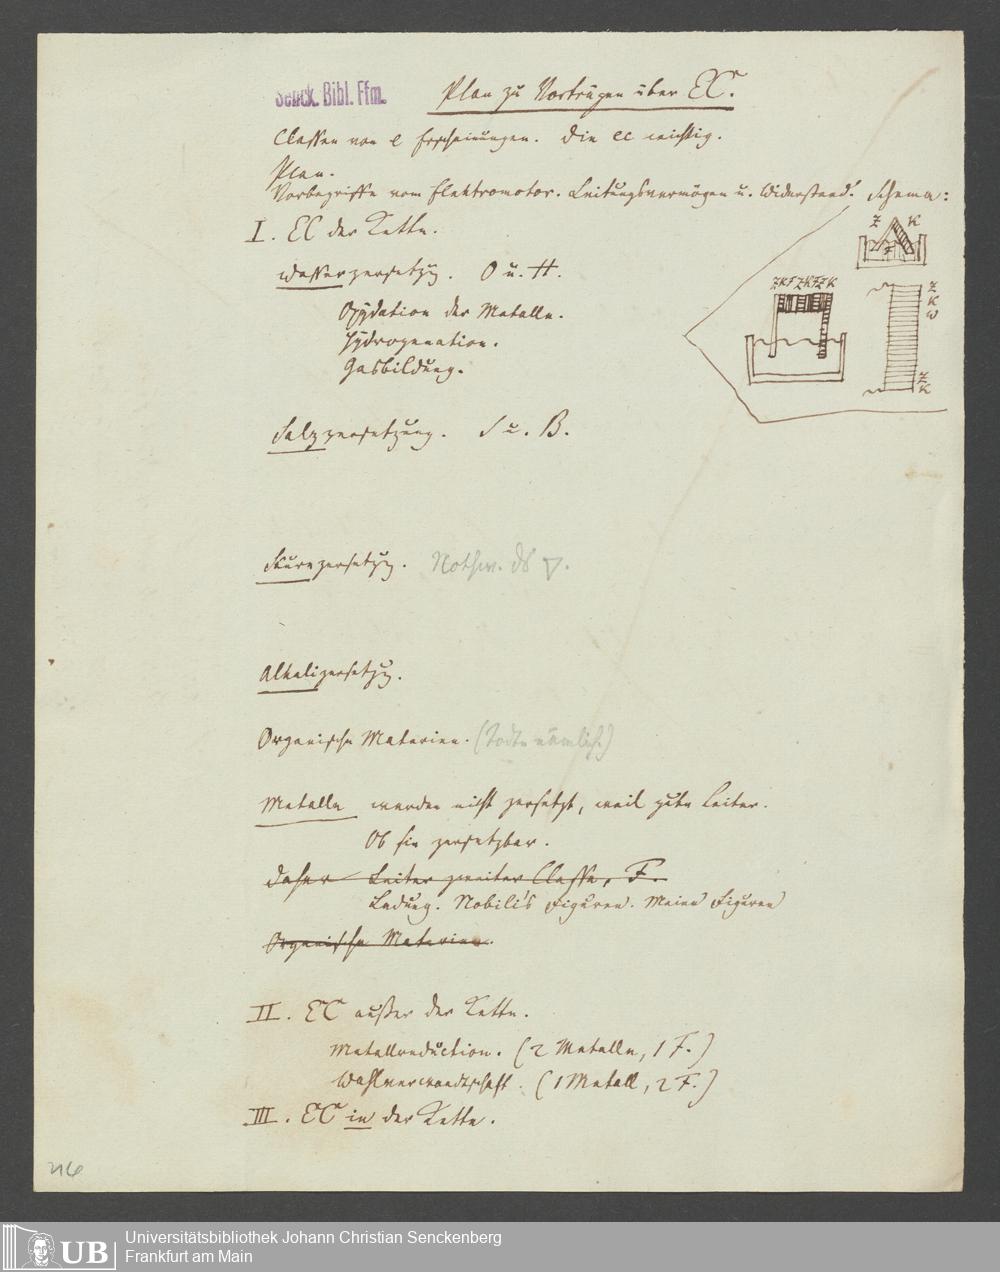 Senck. Bibl. Ffm.
Plan zu Vorträgen über EC.
Classen von e Erscheinungen. Die ec wichtig.
Plan.
Vorbegriffe vom Elektromotor. Leitungsvermögen u. Widerstand. Schema:
I. EC der Kette.
Z K
F
Wasserzersetzg. O u. H.
ZKFZKFZK
Z
K
W
Oxydation der Metalle.
Hydrogenation.
Gasbildung.
Z
K
Salzzersetzung. S u. B.
Säurezersetzg. Nothw. ds ▽.
Alkalizersetzg.
Organische Materien. (Todte nämlich)
Metalle werden nicht zersetzt, weil gute Leiter.
Ob sie zersetzbar.
Daher Leiter zweiter Classe, F.
Ladung. Nobili's Figuren. Meine Figuren
Organische Materien.
II. EC außer der Kette.
Metallreduction. (2 Metalle, 1 F.)
Wahlverwandtschaft. (1 Metall, 2 F.)
III. EC in der Kette.
216
UB
Universitätsbibliothek Johann Christian Senckenberg
Frankfurt am Main